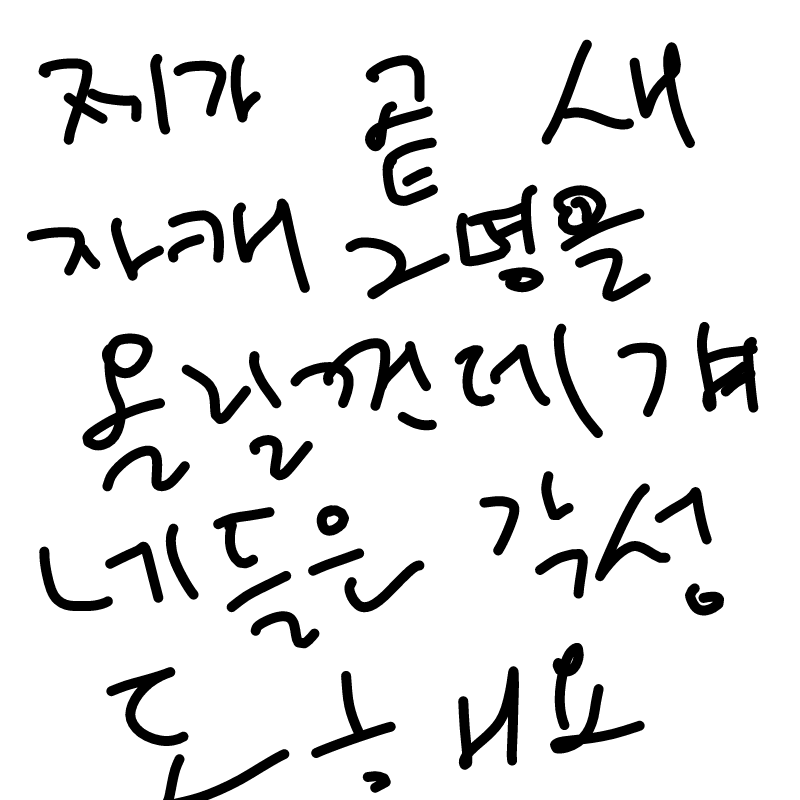 제가 곧 새
자캐 2명을
올릴껀데 걔
네들은 각성
도 해요